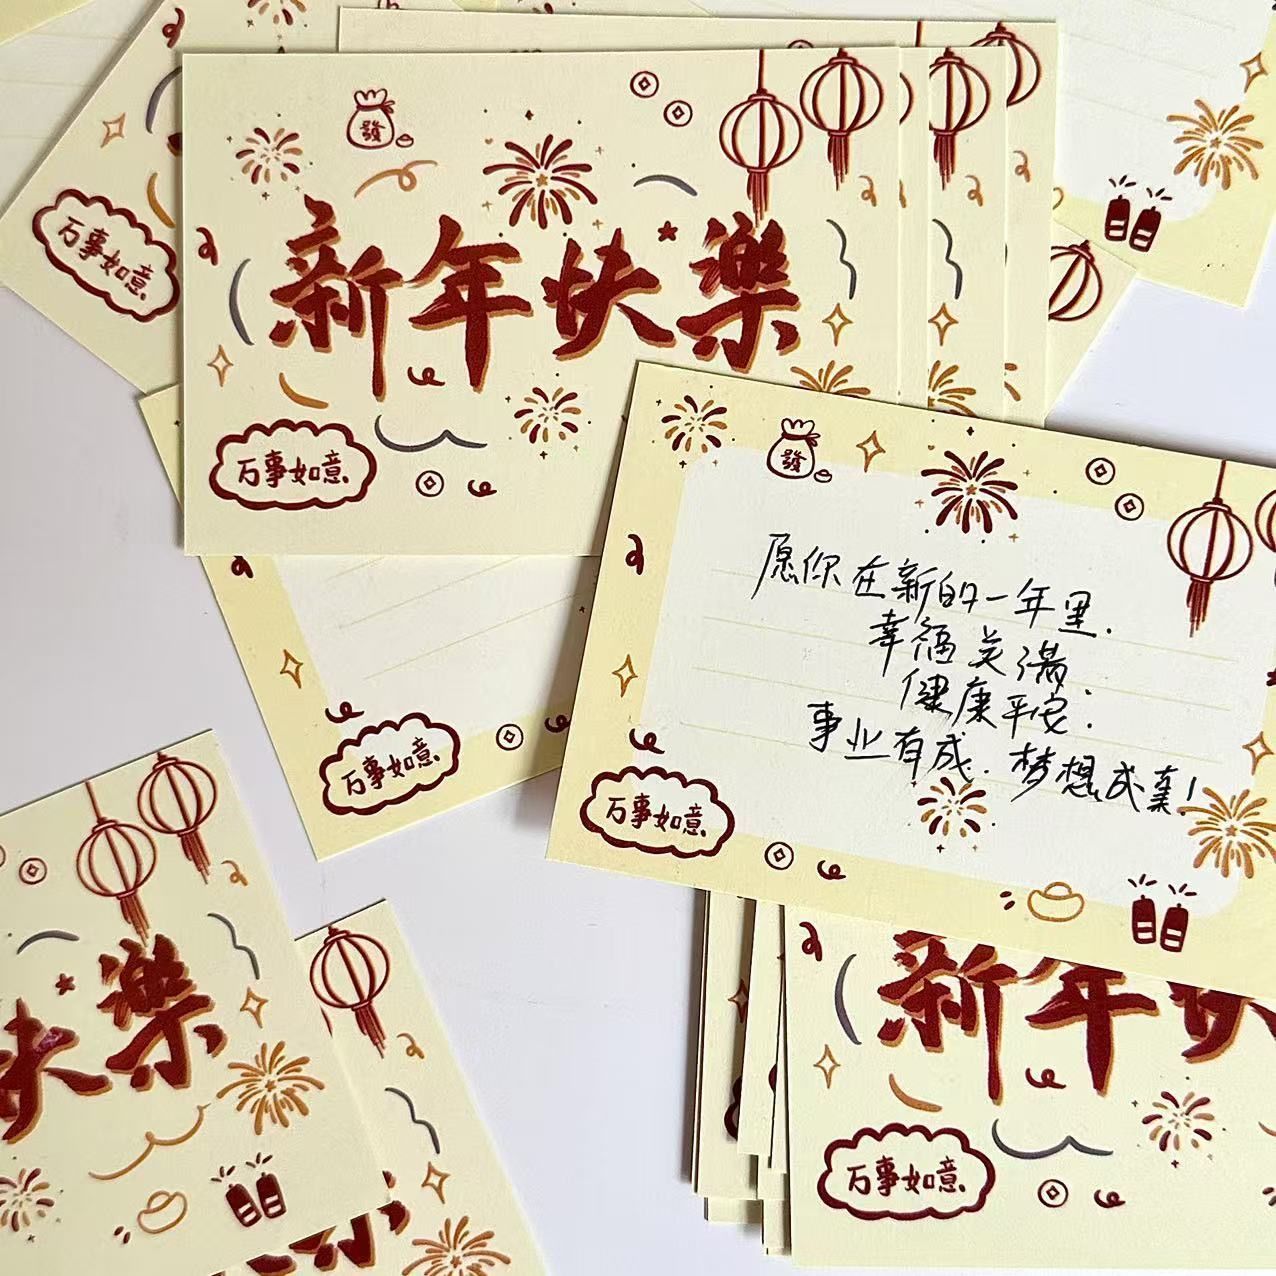 發
新年快樂
万事如意
万事如意
万事如意
發
愿你在新的一年里.
幸福美满
健康平安.
事业有成.梦想成真!
万事如意
快樂
新年快
万事如意